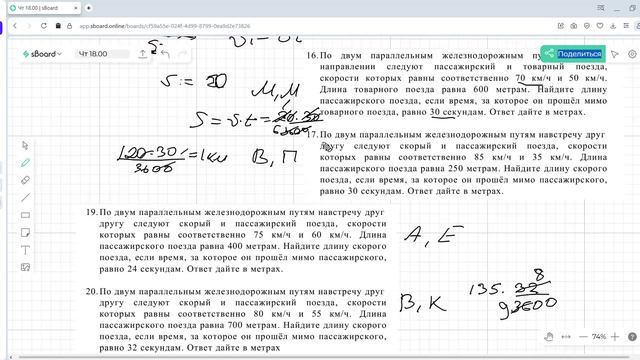 Чт 18.00 | sBoard
app.sboard.online/boards/cf59a55e-024f-4d99-8799-0ea9d2e73826
sBoard
Чт 18.00
Поделиться
S = 20
М, М
S = v·t =
120·30/3600 = 1км
В, П
16. По двум параллельным железнодорожным
направлении следуют пассажирский и товарный поезда,
скорости которых равны соответственно 70 км/ч и 50 км/ч.
Длина товарного поезда равна 600 метрам. Найдите длину
пассажирского поезда, если время, за которое он прошёл мимо
товарного поезда, равно 30 секундам. Ответ дайте в метрах.
17. По двум параллельным железнодорожным путям навстречу друг
другу следуют скорый и пассажирский поезда, скорости
которых равны соответственно 85 км/ч и 35 км/ч. Длина
пассажирского поезда равна 250 метрам. Найдите длину скорого
поезда, если время, за которое он прошёл мимо пассажирского,
равно 30 секундам. Ответ дайте в метрах.
19. По двум параллельным железнодорожным путям навстречу друг
другу следуют скорый и пассажирский поезда, скорости
которых равны соответственно 75 км/ч и 60 км/ч. Длина
пассажирского поезда равна 400 метрам. Найдите длину скорого
поезда, если время, за которое он прошёл мимо пассажирского,
равно 24 секундам. Ответ дайте в метрах.
А, Е
20. По двум параллельным железнодорожным путям навстречу друг
другу следуют скорый и пассажирский поезда, скорости
которых равны соответственно 80 км/ч и 55 км/ч. Длина
пассажирского поезда равна 700 метрам. Найдите длину скорого
поезда, если время, за которое он прошёл мимо пассажирского,
равно 32 секундам. Ответ дайте в метрах
В, К
8
135·32
9 3600
74%